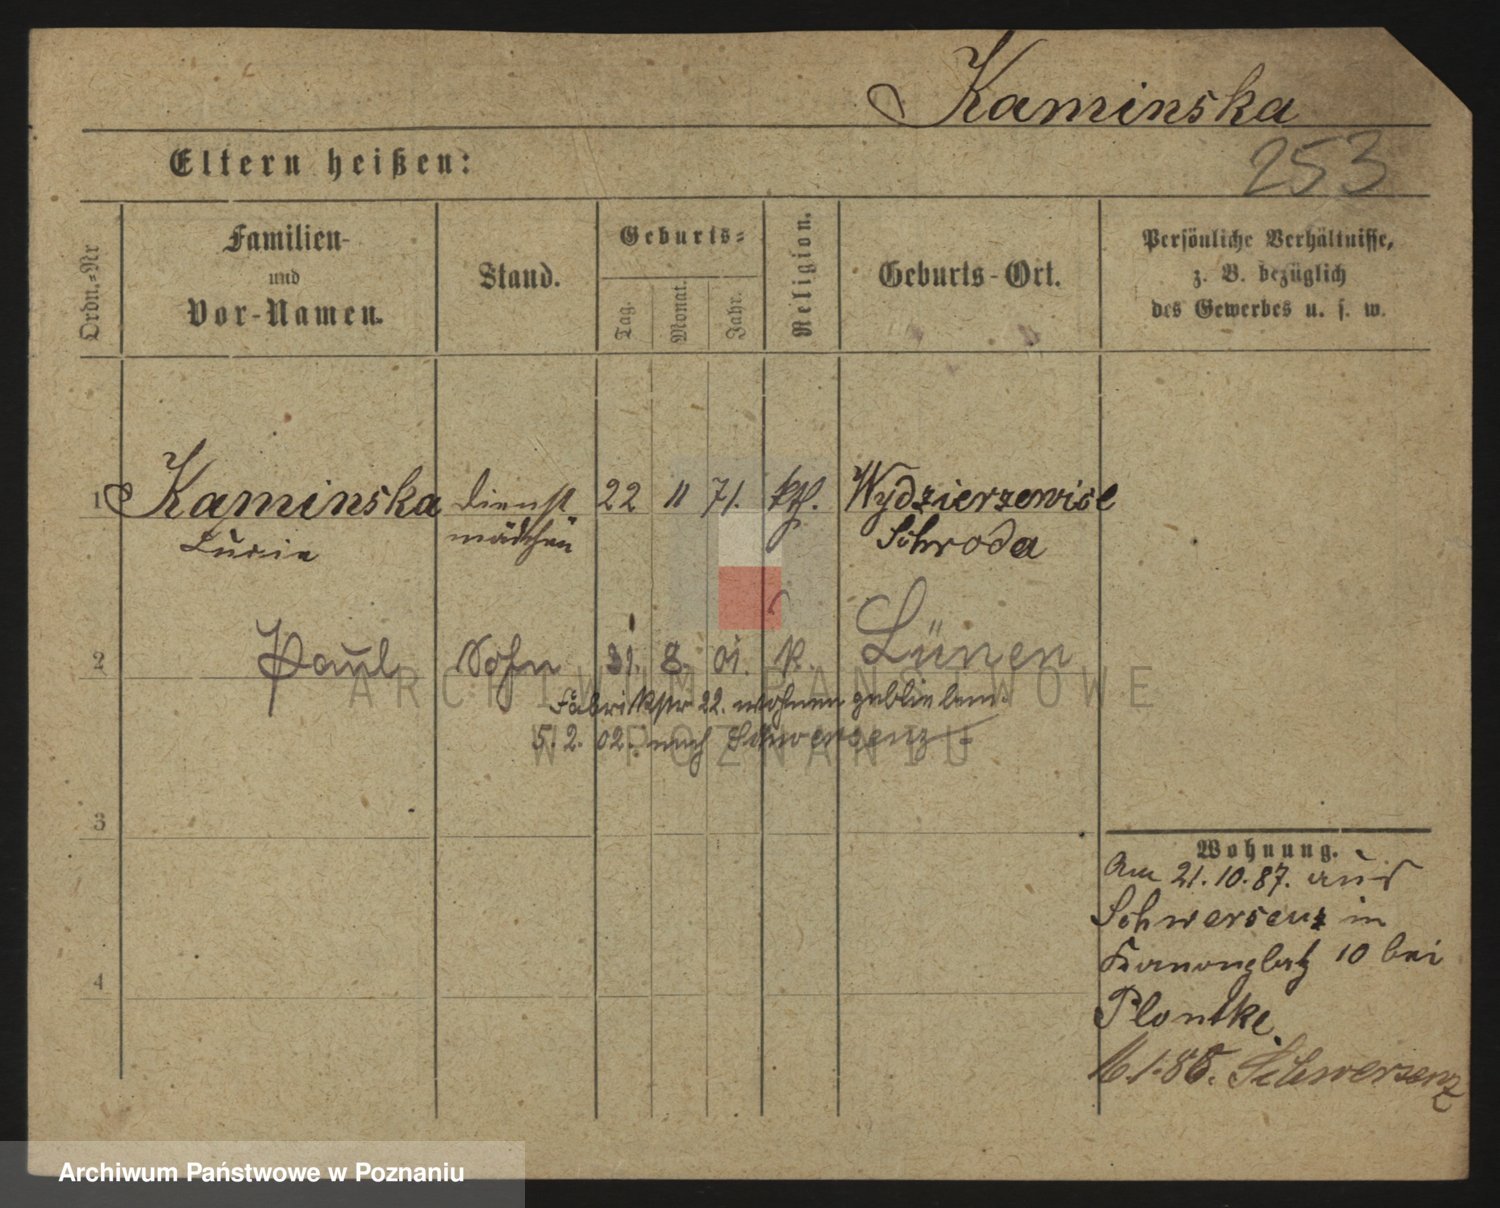 Kaminska
Eltern heißen:
253
Ordn.-Nr
Familien-
und
Vor-Namen.
Stand.
Geburts-
Tag.
Monat.
Jahr.
Religion.
Geburts-Ort.
Persönliche Verhältnisse,
z. B. bezüglich
des Gewerbes u. s. w.
1 Kaminska Dienst 22 11 71. kth. Wydzierzewice
Lucie mädchen Schroda
2 Paul Sohn 31. 8. 01. k. Lünen
Fabrikstr 22. wohnen geblieben.
5. 2. 02. nach Schwersenz
ARCHIWUM PAŃSTWOWE
W POZNANIU
3
Wohnung.
Am 21.10.87. aus
Schwersenz in
Kanonplatz 10 bei
4
Plontke.
1.88. Schwersenz
Archiwum Państwowe w Poznaniu